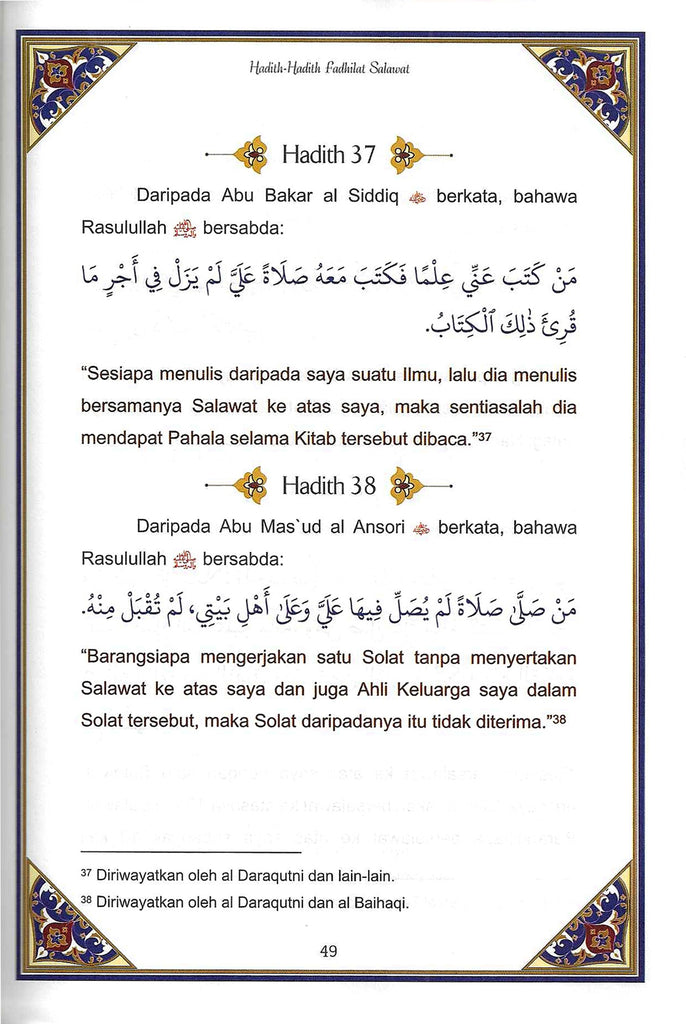 Hadith-Hadith Fadhilat Salawat
Hadith 37
Daripada Abu Bakar al Siddiq ﵁ berkata, bahawa
Rasulullah ﷺ bersabda:
مَنْ كَتَبَ عَنِّي عِلْمًا فَكَتَبَ مَعَهُ صَلَاةً عَلَيَّ لَمْ يَزَلْ فِي أَجْرٍ مَا
قُرِئَ ذَٰلِكَ ٱلْكِتَابُ.
“Sesiapa menulis daripada saya suatu Ilmu, lalu dia menulis
bersamanya Salawat ke atas saya, maka sentiasalah dia
mendapat Pahala selama Kitab tersebut dibaca.”³⁷
Hadith 38
Daripada Abu Mas`ud al Ansori ﵁ berkata, bahawa
Rasulullah ﷺ bersabda:
مَنْ صَلَّىٰ صَلَاةً لَمْ يُصَلِّ فِيهَا عَلَيَّ وَعَلَىٰ أَهْلِ بَيْتِي، لَمْ تُقْبَلْ مِنْهُ.
“Barangsiapa mengerjakan satu Solat tanpa menyertakan
Salawat ke atas saya dan juga Ahli Keluarga saya dalam
Solat tersebut, maka Solat daripadanya itu tidak diterima.”³⁸
³⁷ Diriwayatkan oleh al Daraqutni dan lain-lain.
³⁸ Diriwayatkan oleh al Daraqutni dan al Baihaqi.
49